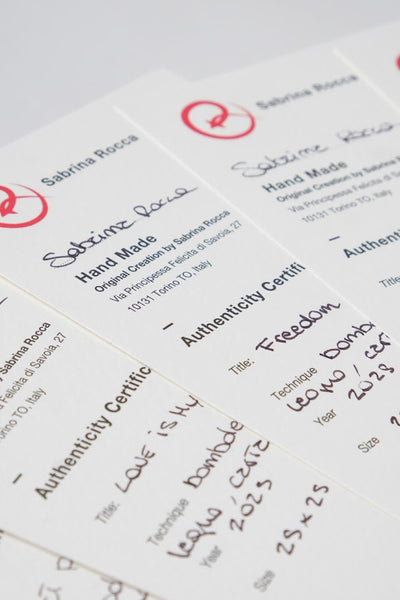 Sabrina Rocca
Sabrina Rocca
Hand Made
Original Creation by Sabrina Rocca
Via Principessa Felicita di Savoia, 27
10131 Torino TO, Italy
Authenticity Certifi
Title: Freedom
Technique
Year 2023
Size 2
Sabrina Rocca
Sabrina Rocca
Hand Made
Original Creation by Sabrina Rocca
Via Principessa Felicita di
10131 Torino TO, Italy
Authenti
Title
Sabrina Rocca
Felicita di Savoia, 27
Torino TO, Italy
Authenticity Certific
Title: LOVE IS MY
Technique bombole
legno, carta
Year 2023
Size 25 x 25